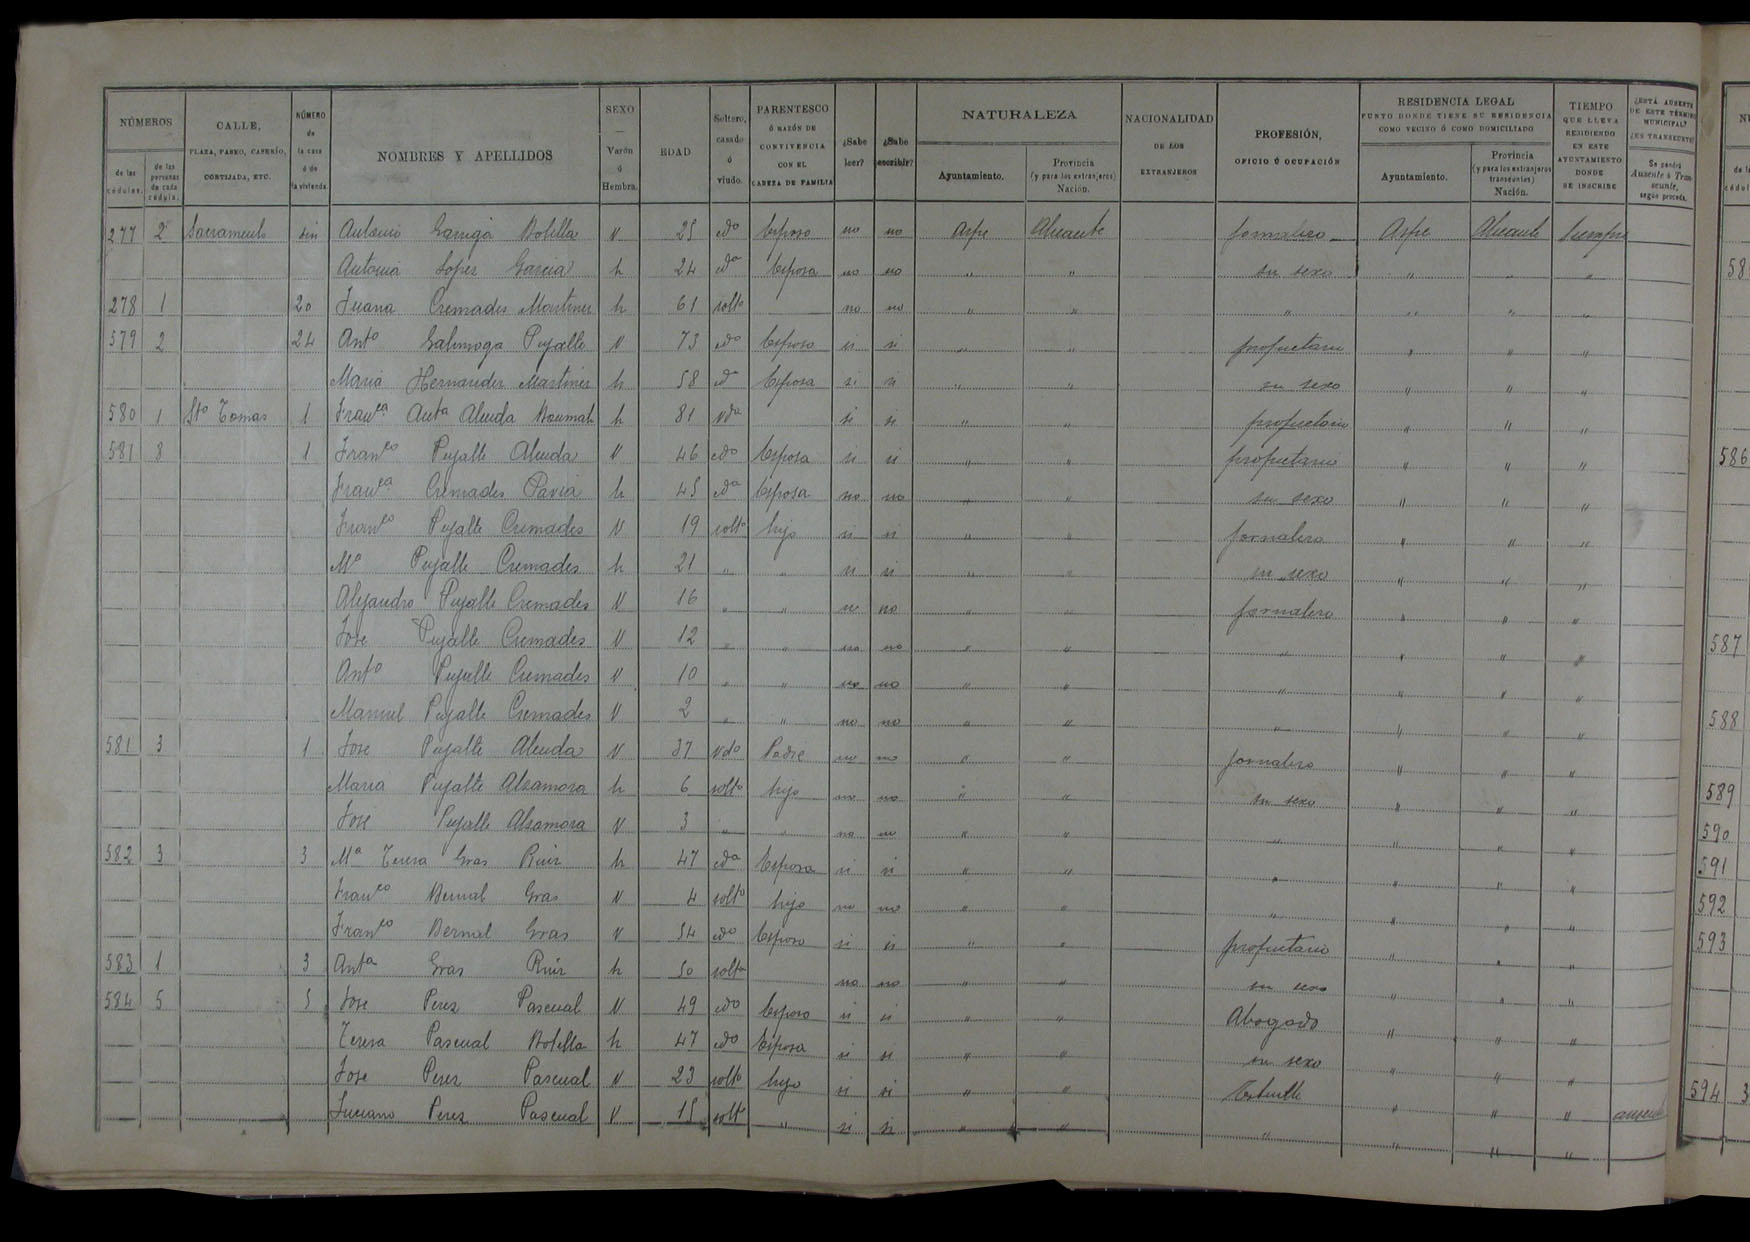 NÚMEROS | CALLE, PLAZA, PASEO, CASERÍO, CORTIJADA, ETC. | NÚMERO de la casa ó de la vivienda. | NOMBRES Y APELLIDOS | SEXO — Varón ó Hembra. | EDAD | Soltero, casado ó viudo. | PARENTESCO Ó RAZÓN DE CONVIVENCIA CON EL CABEZA DE FAMILIA | ¿Sabe leer? | ¿Sabe escribir? | NATURALEZA | NACIONALIDAD DE LOS EXTRANJEROS | PROFESIÓN, OFICIO Ú OCUPACIÓN | RESIDENCIA LEGAL PUNTO DONDE TIENE SU RESIDENCIA COMO VECINO Ó COMO DOMICILIADO | TIEMPO QUE LLEVA RESIDIENDO EN ESTE AYUNTAMIENTO DONDE SE INSCRIBE | ¿ESTÁ AUSENTE DE ESTE TÉRMINO MUNICIPAL? ¿ES TRANSEUNTE?
de las cédulas. | de las personas de cada cédula. | Ayuntamiento. | Provincia (y para los extranjeros) Nación. | Ayuntamiento. | Provincia (y para los extranjeros transeuntes) Nación. | Se pondrá Ausente ó Transeunte, según proceda.
277 2 Sacramento sin Antonio Garriga Botella V 25 cdo Esposo no no Aspe Alicante jornalero Aspe Alicante Siempre
Antonia Lopez Garcia h 24 cda Esposa no no " " su sexo " " "
278 1 20 Juana Cremades Martinez h 61 solta no no " " " " " "
579 2 24 Anto Galinsoga Pujalte V 73 cdo Esposo si si " " propietario " " "
Maria Hernandez Martinez h 58 cda Esposa si si " " su sexo " " "
580 1 Sto Tomas 1 Franca Anta Alenda h 81 vda si si " " propietario " " "
581 8 1 Franco Pujalte Alenda V 46 cdo Esposa si si " " propietario " " "
Franca Cremades Pavia h 45 cda Esposa no no " " su sexo " " "
Franco Pujalte Cremades V 19 solto hijo si si " " jornalero " " "
Ma Pujalte Cremades h 21 " " si si " " su sexo " " "
Alejandro Pujalte Cremades V 16 " " no no " " jornalero " " "
Jose Pujalte Cremades V 12 " " no no " " " " " "
Anto Pujalte Cremades V 10 " " no no " " " " " "
Manuel Pujalte Cremades V 2 " " no no " " " " " "
581 3 1 Jose Pujalte Alenda V 37 vdo Padre no no " " jornalero " " "
Maria Pujalte Alzamora h 6 solto hijo no no " " su sexo " " "
Jose Pujalte Alzamora V 3 " " no no " " " " " "
582 3 3 Ma Teresa Gras Ruiz h 47 cda Esposa si si " " " " " "
Franco Bernal Gras V 4 solto hijo no no " " " " " "
Franco Bernal Gras V 54 cdo Esposo si si " " propietario " " "
583 1 3 Anta Gras Ruiz h 50 solta no no " " su sexo " " "
584 5 5 Jose Perez Pascual V 49 cdo Esposo si si " " Abogado " " "
Teresa Pascual Botella h 47 cdo Esposa si si " " su sexo " " "
Jose Perez Pascual V 23 solto hijo si si " " " " "
Luciano Perez Pascual V 15 solto " si si " " " " " " ausente
58
586
587
588
589
590
591
592
593
594 3